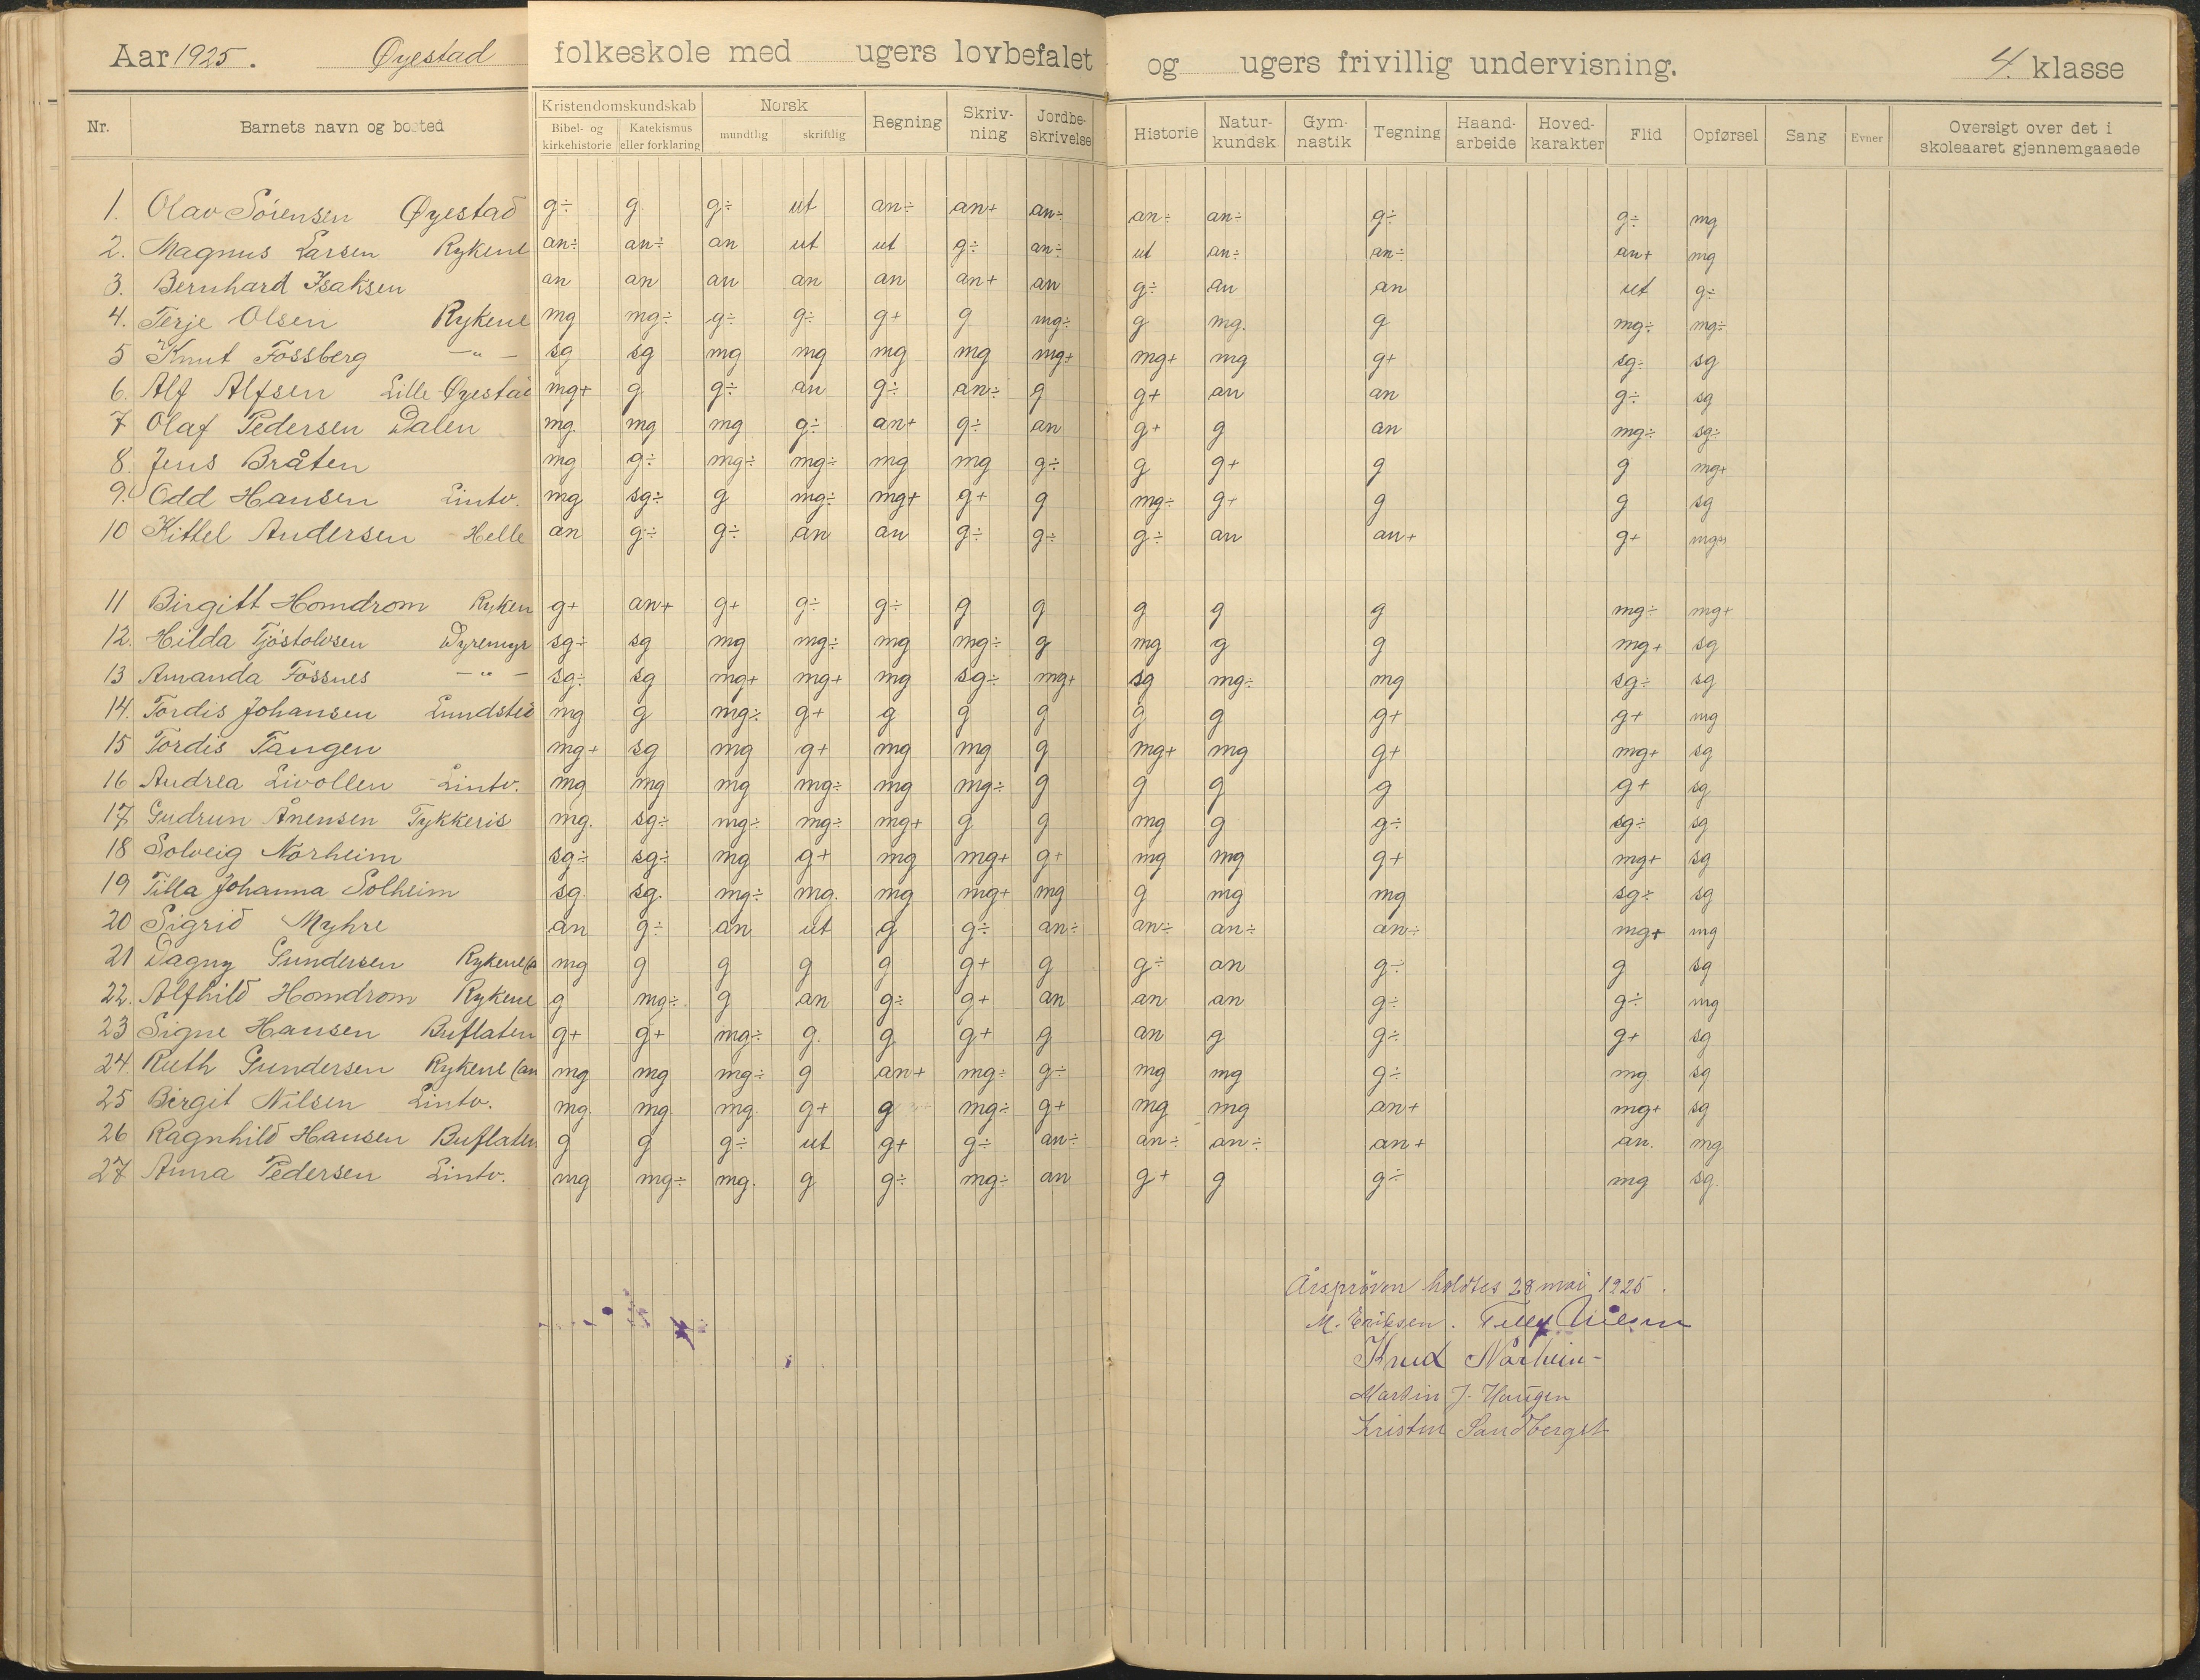 Aar 1925. Øyestad folkeskole med ugers lovbefalet og ugers frivillig undervisning. 4. klasse
Nr. Barnets navn og bosted Kristendomskundskab Norsk Regning Skriv-ning Jordbe-skrivelse Historie Natur-kundsk. Gym-nastik Tegning Haand-arbeide Hoved-karakter Flid Opførsel Sang Evner Oversigt over det i skoleaaret gjennemgaaede
Bibel- og kirkehistorie Katekismus eller forklaring mundtlig skriftlig
1. Olav Sörensen Øyestad g÷ g g÷ ut an÷ an+ an÷ an÷ an÷ g÷ g÷ mg
2. Magnus Larsen Rykene an÷ an÷ an ut ut g÷ an÷ ut an÷ an÷ an+ mg
3. Bernhard Isaksen an an an an an an+ an g÷ an an ut g÷
4. Terje Olsen Rykene mg mg÷ g÷ g÷ g+ g mg÷ g mg. g mg÷ mg÷
5 Knut Fossberg —"— sg sg mg mg mg mg mg+ mg+ mg g+ sg÷ sg
6. Alf Alfsen Lille-Øyestad mg+ g g÷ an g÷ an÷ g g+ an an g÷ sg
7 Olaf Pedersen Dalen mg. mg mg g÷ an+ g÷ an g+ g an mg÷ sg÷
8. Jens Bråten mg g÷ mg÷ mg÷ mg mg g÷ g g+ g g mg+
9. Odd Hansen Lintv. mg sg÷ g mg÷ mg+ g+ g mg÷ g+ g g sg
10 Kittel Andersen - Helle an g÷ g÷ an an g÷ g÷ g÷ an an+ g+
11 Birgitt Homdrom Ryken g+ an+ g+ g÷ g÷ g g g g g mg÷ mg+
12. Hilda Tjöstolvsen Dyremyr sg÷ sg mg mg÷ mg mg÷ g mg g g mg+ sg
13 Amanda Fossnes —"— sg÷ sg mg+ mg+ mg sg÷ mg+ sg mg÷ mg sg÷ sg
14. Tordis Johansen Lundsted mg g mg÷ g+ g g g g g g+ g+ mg
15 Tordis Tangen mg+ sg mg g+ mg mg g mg+ mg g+ mg+ sg
16 Andrea Livollen Lintv. mg mg mg mg÷ mg mg÷ g g g g g+ sg
17 Gudrun Ånensen Tykkeris mg. sg÷ mg÷ mg÷ mg+ g g mg g g÷ sg÷ sg
18 Solveig Norheim sg÷ sg÷ mg g+ mg mg+ g+ mg mg g+ mg+ sg
19 Tilla Johanna Solheim sg. sg. mg÷ mg. mg mg+ mg g mg mg sg÷ sg
20 Sigrid Myhre an g÷ an ut g g÷ an÷ an÷ an÷ an÷ mg+ mg
21 Dagny Gundersen Rykene(a mg g g g g g+ g g÷ an g÷ g sg
22. Alfhild Homdrom Rykene g mg÷ g an g÷ g+ an an an g÷ g÷ mg
23 Signe Hansen Buflaten g+ g+ mg÷ g. g g+ g an g g÷ g+ sg
24. Ruth Gundersen Rykene (an mg mg mg÷ g an+ mg÷ g÷ mg mg g÷ mg sg
25 Birgit Nilsen Lintv. mg. mg. mg. g+ g mg÷ g+ mg mg an+ mg+ sg
26 Ragnhild Hansen Buflaten g g g÷ ut g+ g÷ an÷ an÷ an÷ an+ an. mg
27 Anna Pedersen Lintv. mg mg÷ mg. g g÷ mg÷ an g+ g g÷ mg sg.
Årspröven holdtes 28 mai 1925.
M. Eriksen. Tellef Nilsen
Knud Nårheim
Martin J. Haugen
Kristen